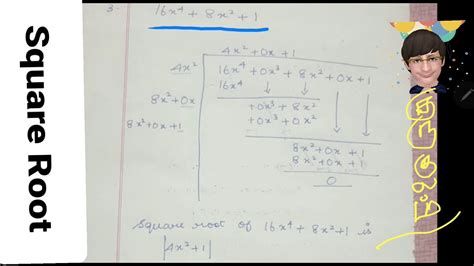 3.
16x⁴ + 8x² + 1
4x² + 0x + 1
4x² 16x⁴ + 0x³ + 8x² + 0x + 1
16x⁴
8x² + 0x +0x³ + 8x²
+0x³ + 0x²
8x² + 0x + 1 8x² + 0x + 1
8x² + 0x + 1
0
Square root of 16x⁴ + 8x² + 1 is
|4x² + 1|
Square Root